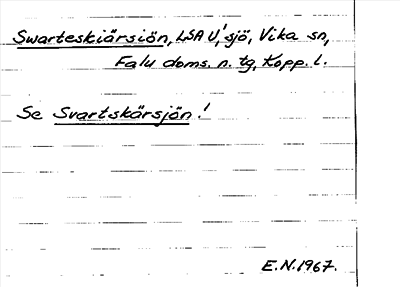 Swarteskiärsiön, LSA U!, sjö, Vika sn,
Falu doms. n. tg, Kopp. l.
Se Svartskärsjön!
E.N. 1967.